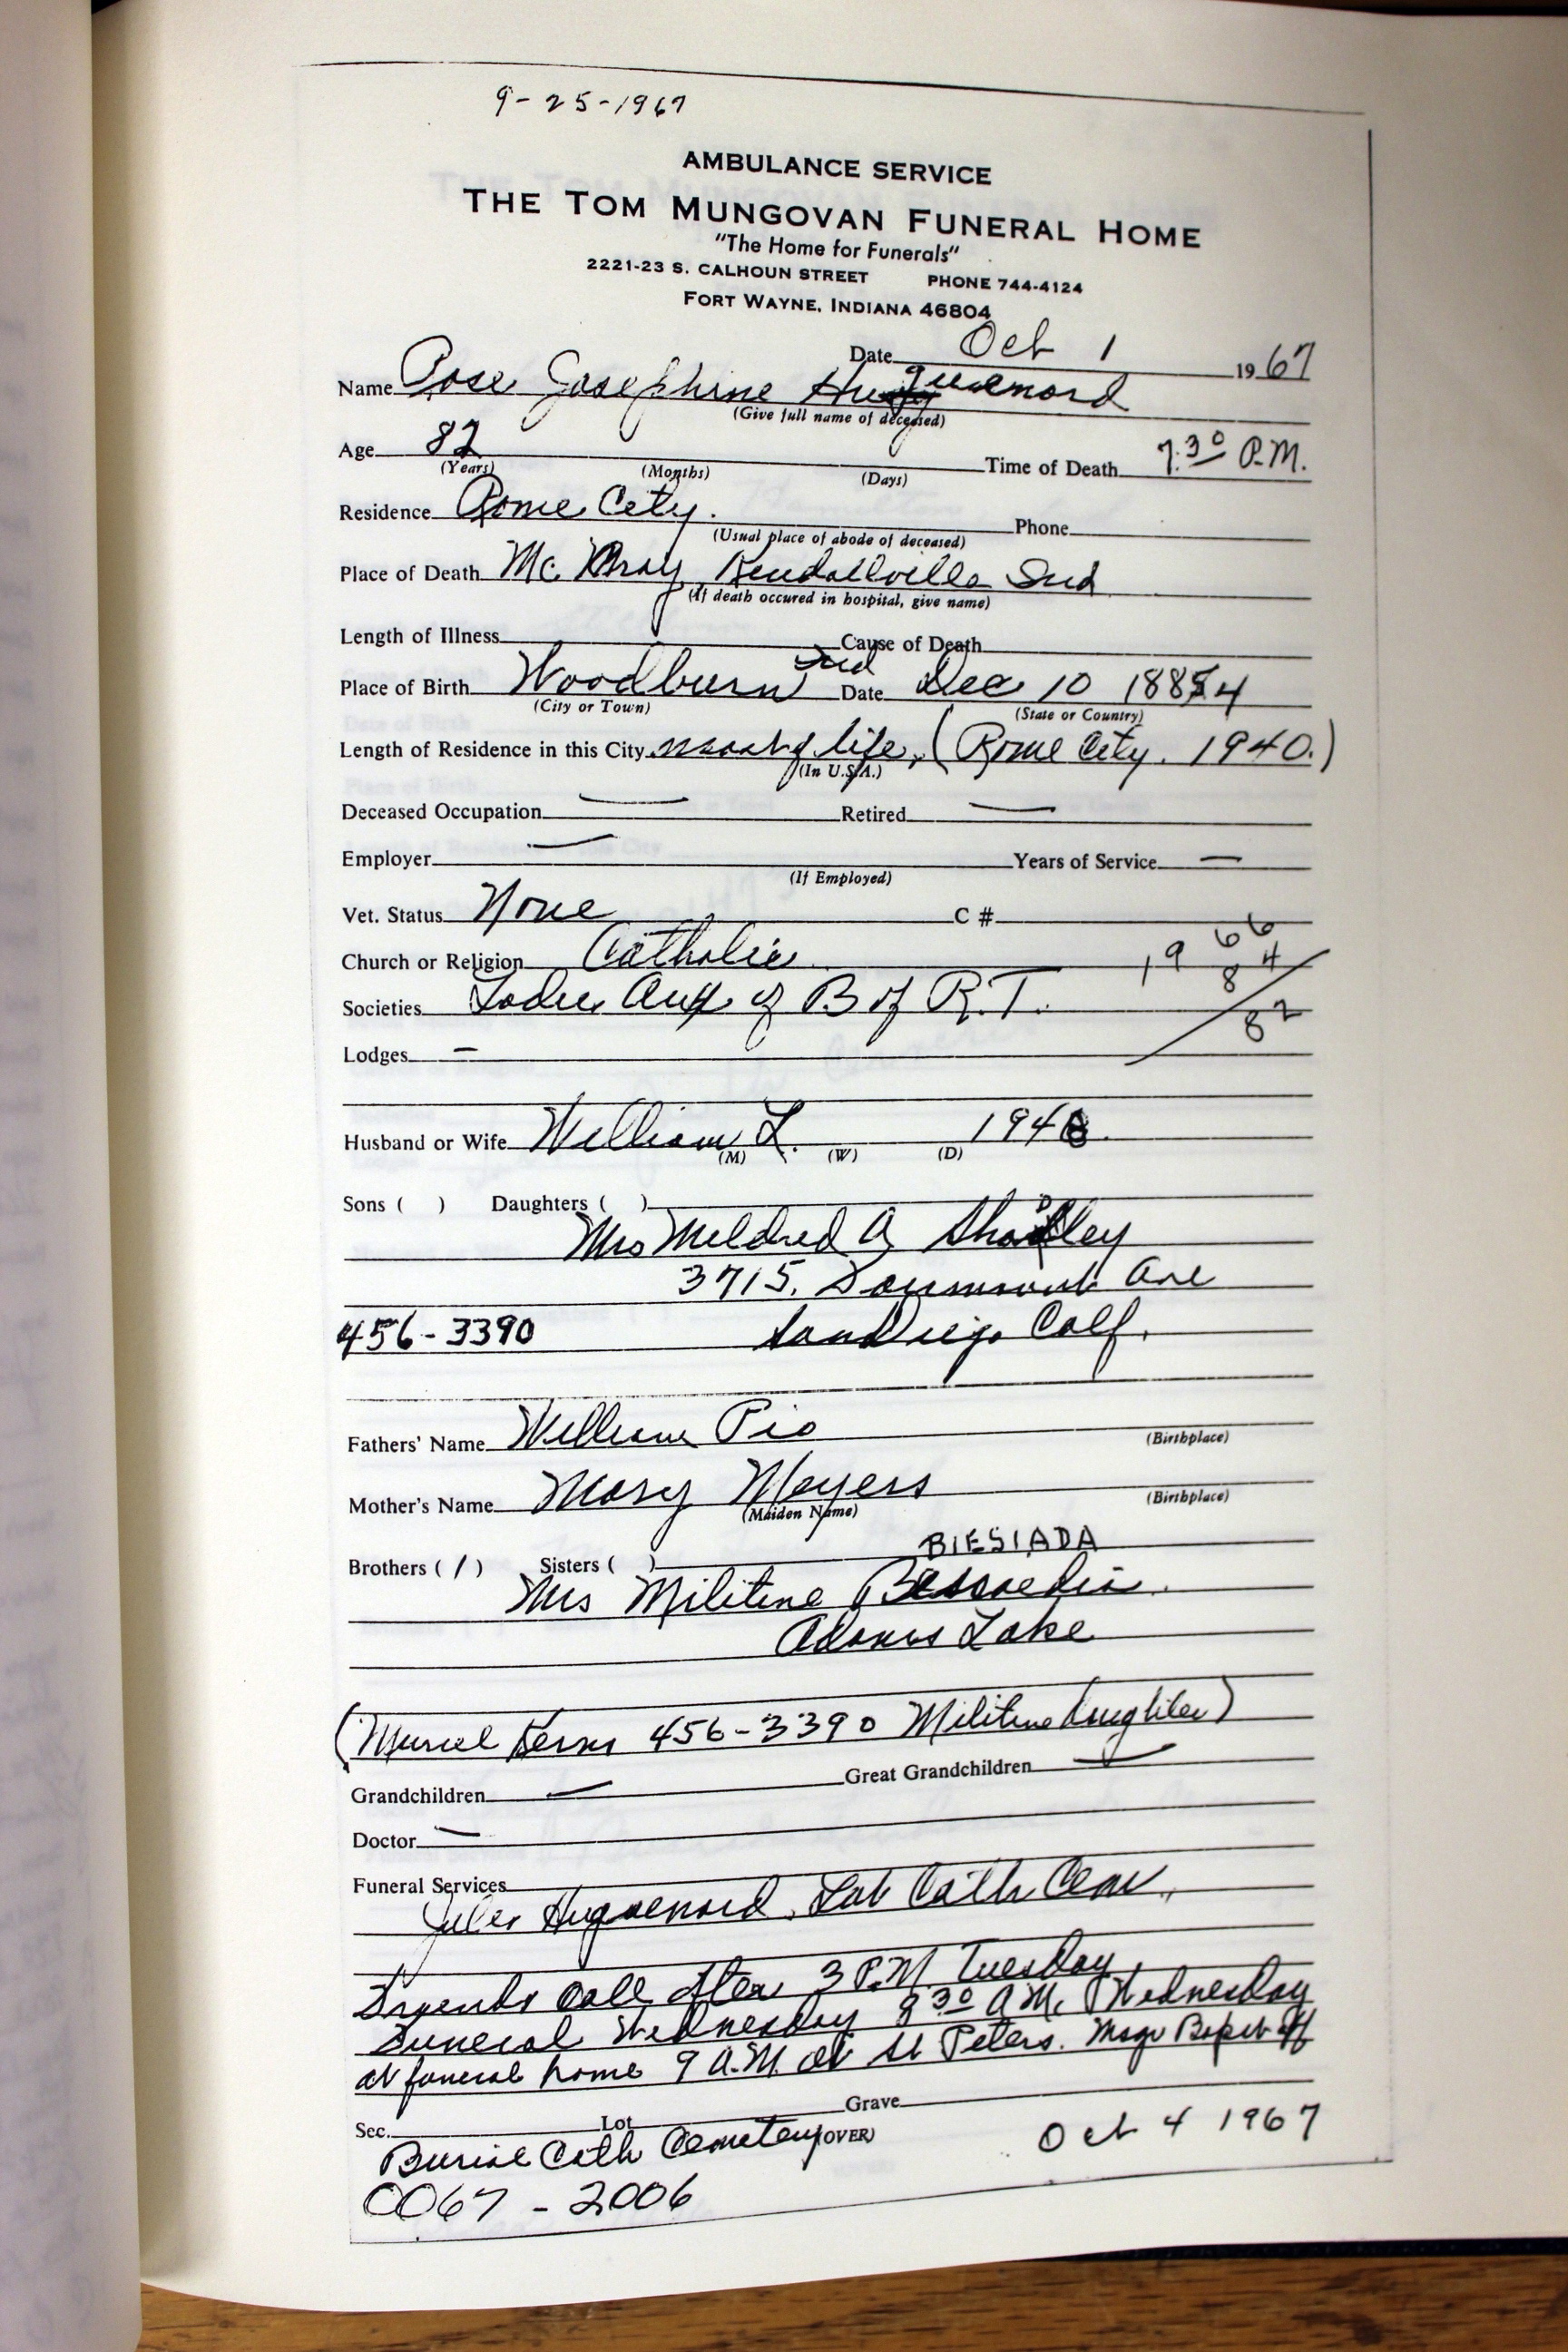 9-25-1967
AMBULANCE SERVICE
THE TOM MUNGOVAN FUNERAL HOME
"The Home for Funerals"
2221-23 S. CALHOUN STREET PHONE 744-4124
FORT WAYNE, INDIANA 46804
Date Oct 1 1967
Name Rose Josephine Huguenard
(Give full name of deceased)
Age 82 Time of Death 7:30 P.M.
(Years) (Months) (Days)
Residence Rome City. Phone
(Usual place of abode of deceased)
Place of Death Mc Cray Kendallville Ind
(If death occured in hospital, give name)
Length of Illness Cause of Death
Place of Birth Woodburn Ind Date Dec 10 1884
(City or Town) (State or Country)
Length of Residence in this City most of life, (Rome City. 1940.)
(In U.S.A.)
Deceased Occupation — Retired —
Employer — Years of Service —
(If Employed)
Vet. Status None C #
Church or Religion Catholic 1966
Societies Ladies Aux of B of R.T. 84
82
Lodges —
Husband or Wife William L. 1948.
(M) (W) (D)
Sons ( ) Daughters ( )
Mrs Mildred A
3715. Ave
456-3390 San Diego Calf.
Fathers' Name William Pio (Birthplace)
Mother's Name Mary Meyers (Birthplace)
(Maiden Name)
BIESIADA
Brothers (1) Sisters ( )
Mrs Militine
Adams Lake
(Muriel Kerns 456-3390 Militine daughter)
Grandchildren — Great Grandchildren —
Doctor —
Funeral Services
Jules Huguenard. Lot Cath Cem.
Friends Call after 3 P.M. Tuesday
Funeral Wednesday 8:30 A.M. Wednesday
at funeral home 9 A.M. at St Peters. Msgr
Sec. Lot Grave
Burial Cath Cemetery (OVER) Oct 4 1967
0067 - 2006